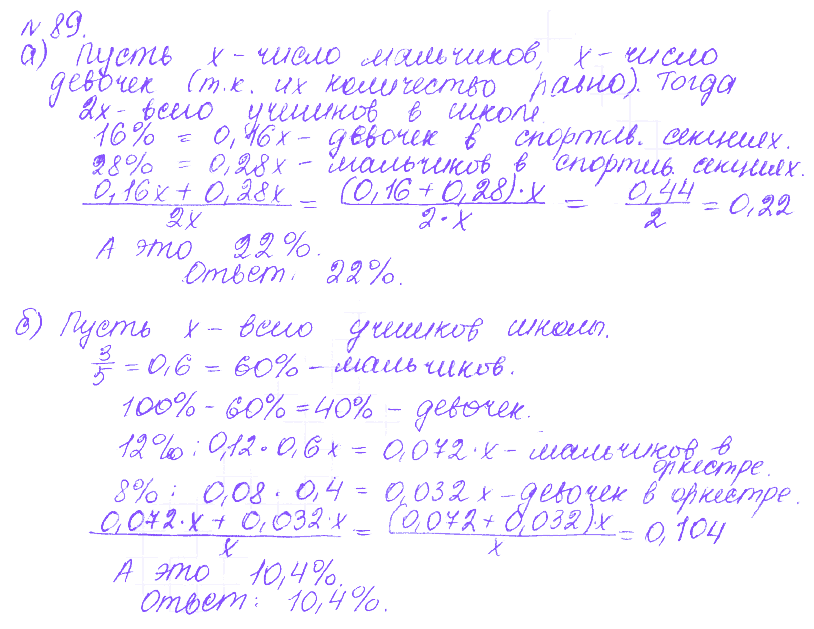 № 89.
а) Пусть х – число мальчиков, х – число
девочек (т.к. их количество равно). Тогда
2х – всего учеников в школе
16% = 0,16х – девочек в спортив. секциях.
28% = 0,28х – мальчиков в спортив. секциях.
(0,16х + 0,28х)/2х = ((0,16 + 0,28)·х)/(2·х) = 0,44/2 = 0,22
А это 22%.
Ответ: 22%.
б) Пусть х – всего учеников школы.
3/5 = 0,6 = 60% – мальчиков.
100% – 60% = 40% – девочек.
12% : 0,12 · 0,6х = 0,072 · х – мальчиков в
оркестре.
8% : 0,08 · 0,4 = 0,032 х – девочек в оркестре.
(0,072·х + 0,032·х)/х = ((0,072 + 0,032)х)/х = 0,104
А это 10,4%.
Ответ: 10,4%.